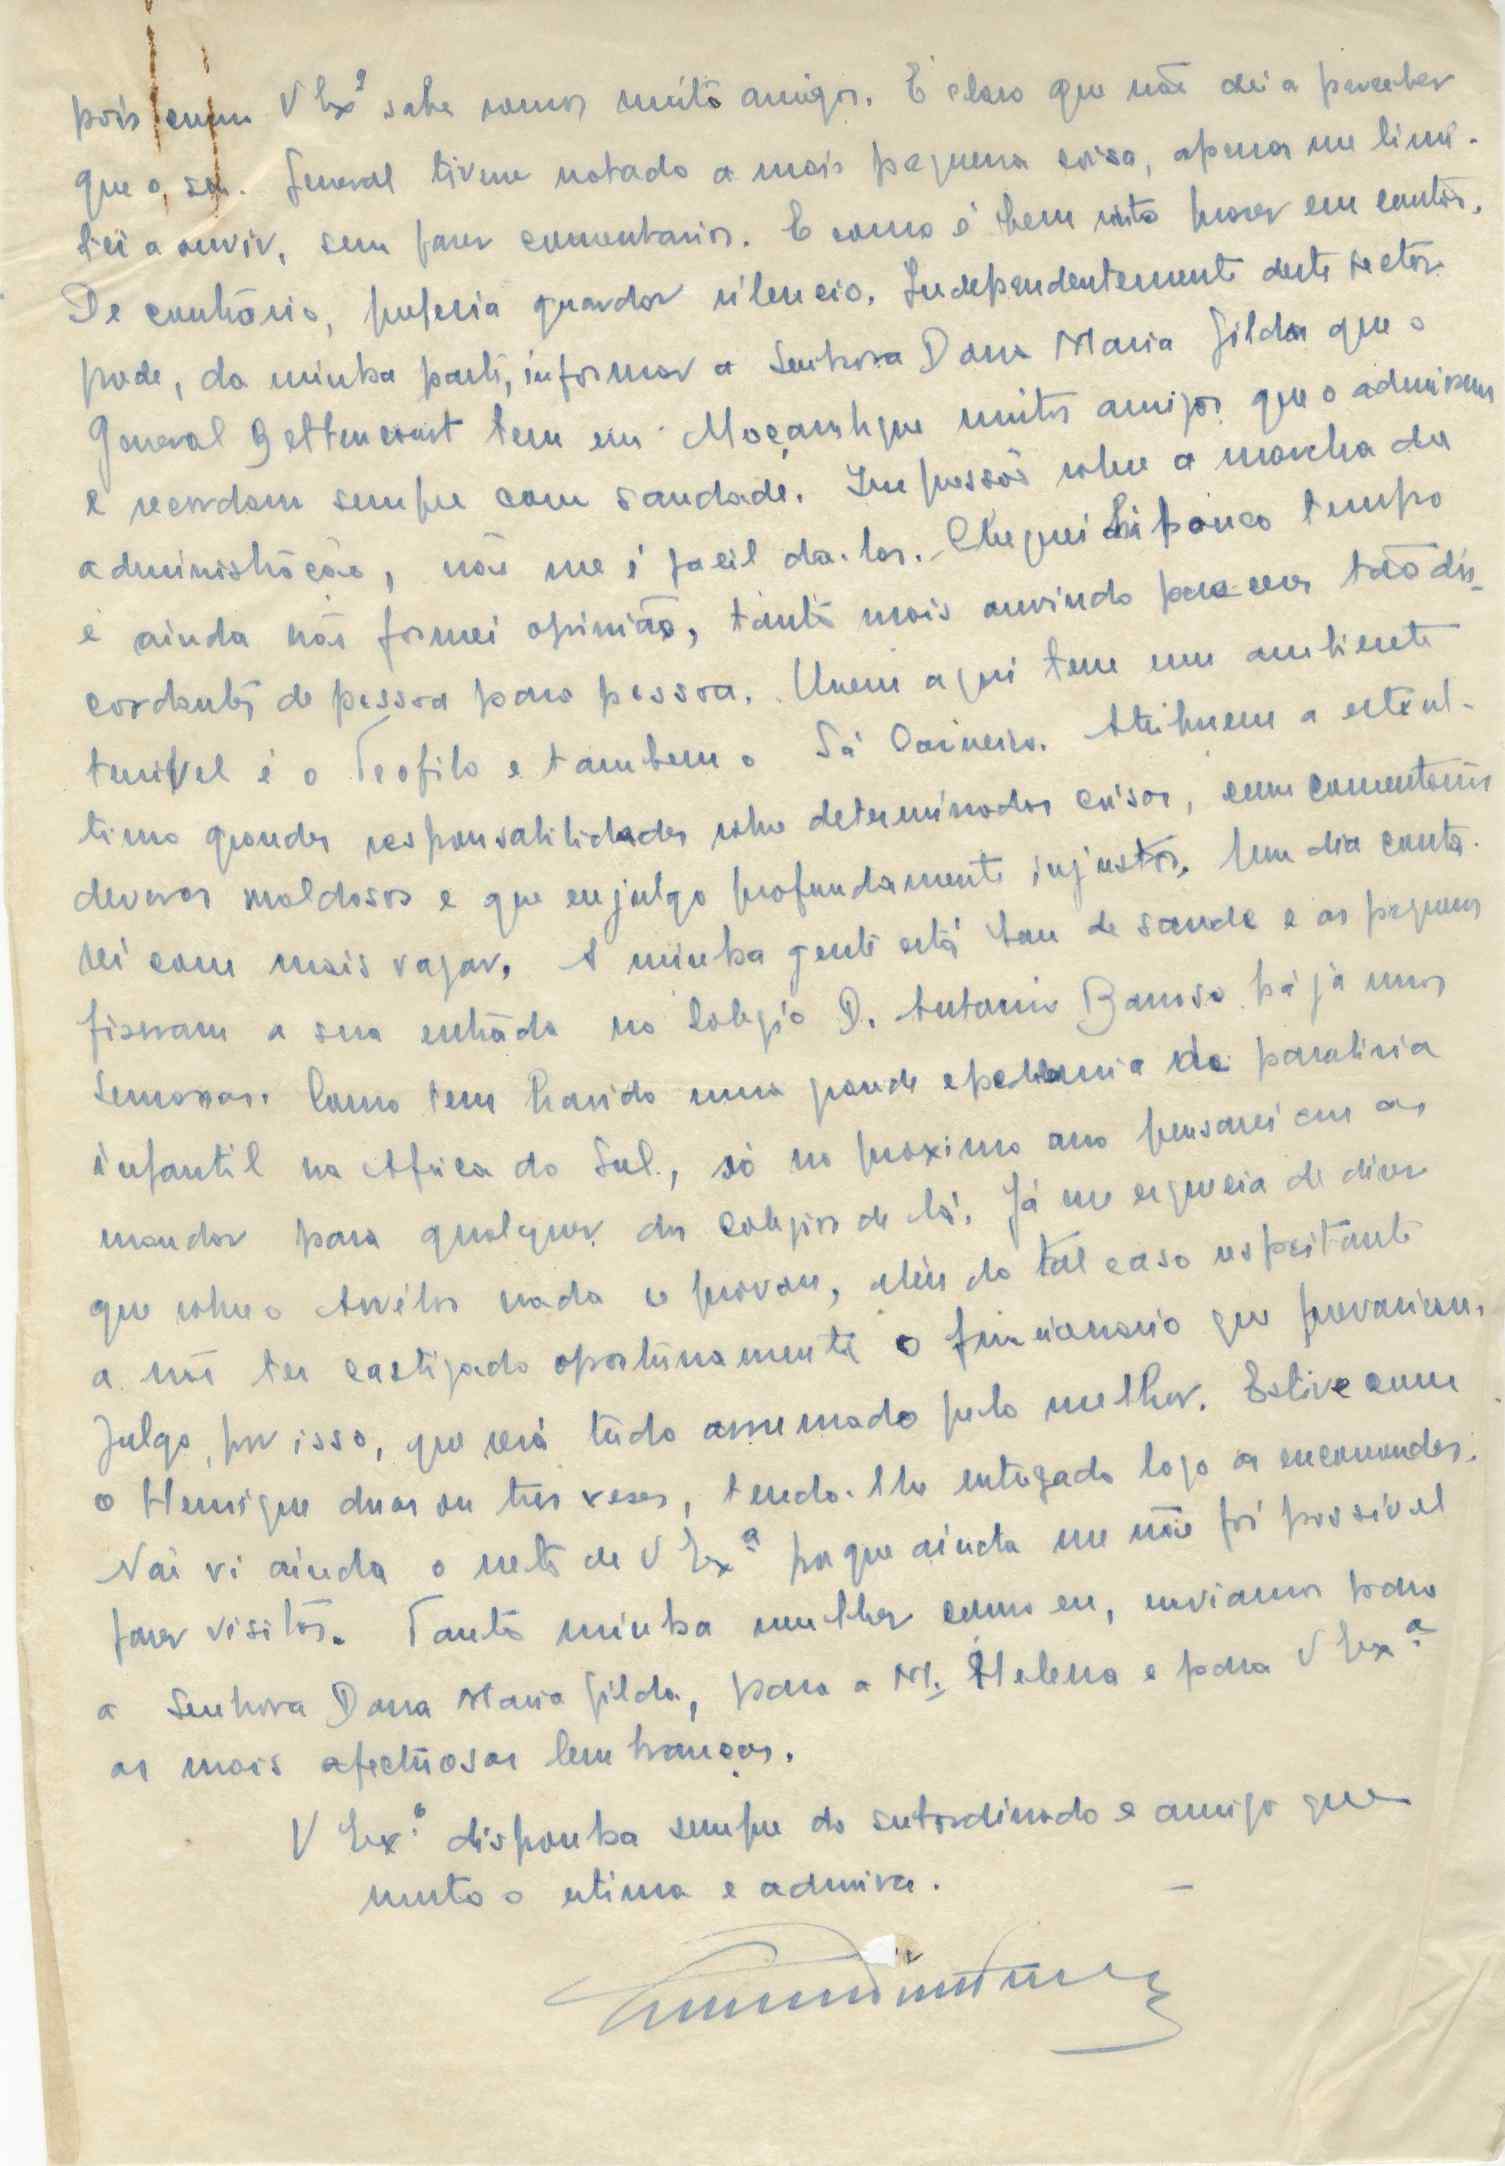 pois como V Ex.ª sabe somos muito amigos. É claro que não dei a perceber
que o sr. General tivesse notado a mais pequena coisa, apenas me limi-
tei a ouvir, sem fazer comentarios. E como é bem visto prazer em
De contrário, preferia guardar silencio. Independentemente deste sector
pode, da minha parte, informar a Senhora Dona Maria Gilda que o
General Bettencourt tem em Moçambique muitos amigos que o admiram
e recordam sempre com saudade. Impressões sobre a marcha da
administração, não me é facil da-las. Cheguei há pouco tempo
e ainda não formei opinião, tanto mais ouvindo pareceres tão dis-
cordantes de pessoa para pessoa. Quem aqui tem um ambiente
terrivel é o Teofilo e tambem o Sá Carneiro. Atribuem a este ul-
timo grandes responsabilidades sobre determinadas coisas, com comentários
deveras maldosos e que eu julgo profundamente injustos. Um dia conta-
rei com mais vagar. A minha gente está boa de saude e os pequenos
fizeram a sua entrada no Colegio D. Antonio Barroso há já umas
semanas. Como tem havido uma grande epedemia de paralisia
infantil na Africa do Sul, só no proximo ano pensarei em os
mandar para qualquer dos colegios de lá. Já me esquecia de dizer
que sobre o nada se provou, além do tal caso respeitante
a não ter castigado oportunamente o funcionario que prevaricou.
Julgo, por isso, que será tudo arrumado pelo melhor. Estive com
o Henrique duas ou tres vezes, tendo-lhe entregado logo as encomendas.
Não vi ainda o neto de V Ex.ª porque ainda me não foi possível
fazer visitas. Tanto minha mulher como eu, enviamos para
a Senhora Dona Maria Gilda, para a M. Helena e para V Ex.ª
as mais afectuosas lembranças.
V Ex.ª disponha sempre do subordinado e amigo que
muito o estima e admira.